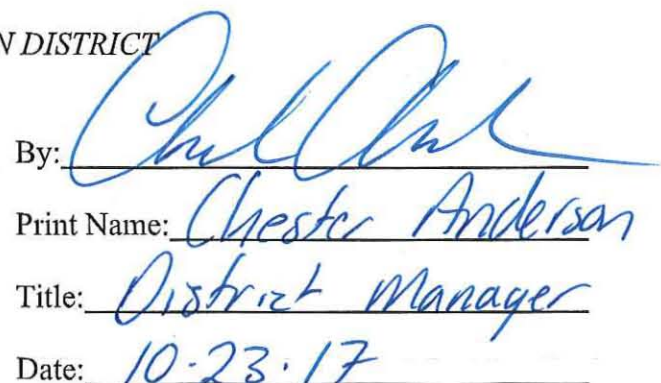 N DISTRICT
By:
Print Name: Chester Anderson
Title: District Manager
Date: 10.23.17